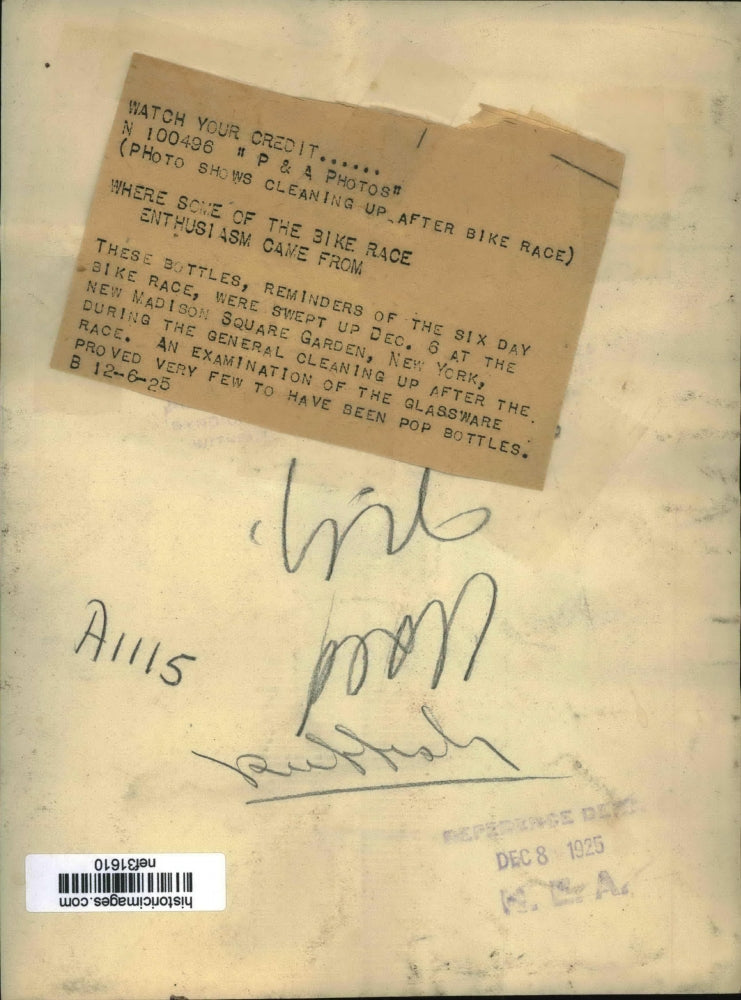 WATCH YOUR CREDIT......
N 100496 " P & A PHOTOS"
(PHOTO SHOWS CLEANING UP AFTER BIKE RACE)
WHERE SOME OF THE BIKE RACE
ENTHUSIASM CAME FROM
THESE BOTTLES, REMINDERS OF THE SIX DAY
BIKE RACE, WERE SWEPT UP DEC. 6 AT THE
NEW MADISON SQUARE GARDEN, NEW YORK,
DURING THE GENERAL CLEANING UP AFTER THE
RACE. AN EXAMINATION OF THE GLASSWARE
PROVED VERY FEW TO HAVE BEEN POP BOTTLES.
B 12-6-25
A1115
REFERENCE DEPT.
DEC 8 1925
N. E. A.
historicimages.com
nef31610